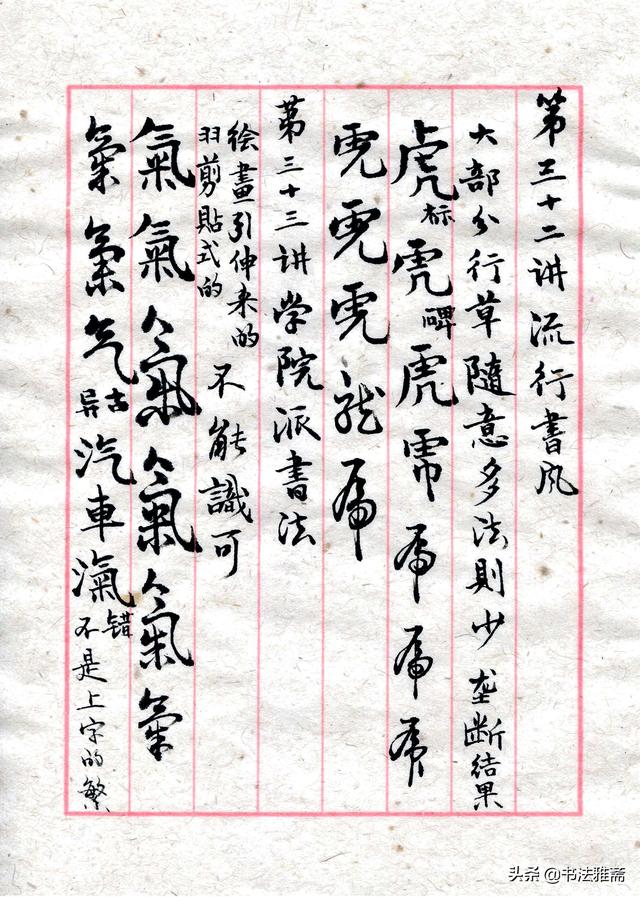 第三十二讲流行書风
大部分行草隨意多法則少垄断结果
虎标虎碑虎虎虎虎虎
虎虎虎龙虎
第三十三讲学院派書法
绘畫引伸来的
羽剪貼式的
不能識可
氣氣氣氣氣氣
氣氣气异古汽車滊错不是上字的繁
头条 @书法雅斋